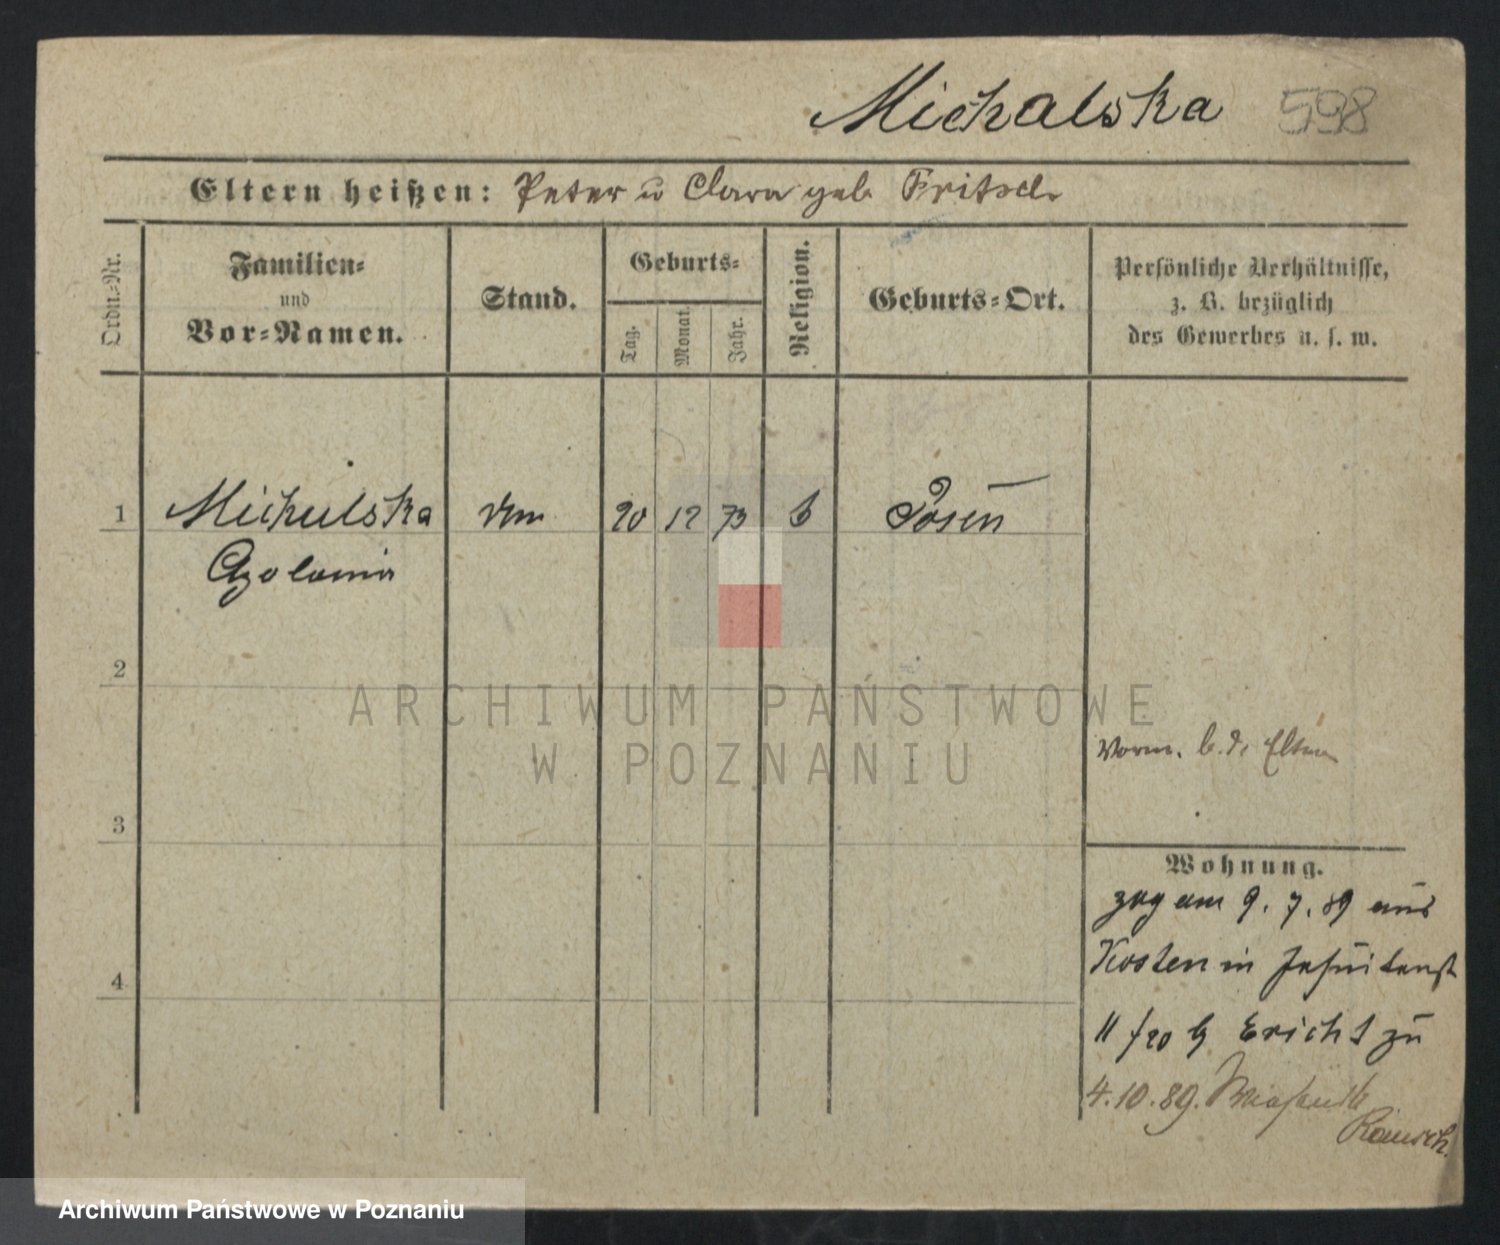 Michalska 598
Eltern heißen: Peter u Clara geb Fritsch
Ordn.-Nr.
Familien-
und
Vor-Namen.
Stand.
Geburts-
Tag.
Monat.
Jahr.
Religion.
Geburts-Ort.
Persönliche Verhältnisse,
z. B. bezüglich
des Gewerbes u. s. w.
1 Michalska 20 12 73 Posen
2
ARCHIWUM PAŃSTWOWE
W POZNANIU
Vorm. b. d. Eltern
3
Wohnung.
zog am 9. 7. 89 aus
Kosten in Jesuitenst
11 b Ericht zu
4
4.10.89.
Rausch.
Archiwum Państwowe w Poznaniu